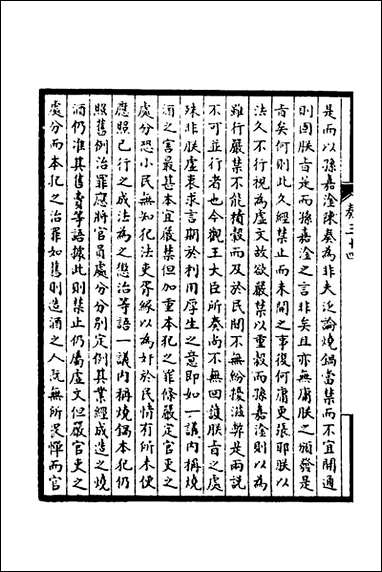 是而以孫嘉淦陳奏為非夫泛論燒鍋當禁而不宜開通
則固朕旨是而孫嘉淦之言非矣且亦無庸朕之頒發是
旨矣何則此久經禁止而未開之事後何庸更張耶朕以
法久不行視為虛文故欲嚴禁以重穀而孫嘉淦則以為
雖行嚴禁不能積穀而及於民間不無紛擾滋弊是兩說
不可並行者也今觀王大臣所奏尚不無回護朕旨之處
殊非朕虛衷求言期於利用厚生之意即如一議內稱燒
酒之害最甚本宜嚴禁但加重本犯之罪條嚴定官吏之
處分恐小民無知犯法吏胥緣以為奸於民情有所未便
應照已行之成法為之懲治等語一議內稱燒鍋本犯仍
照舊例治罪應將官員處分分別定例其業經成造之燒
酒仍准其售賣等語據此則禁止仍屬虛文但嚴官吏之
處分而本犯之治罪如舊則造酒之人既無所畏憚而官
卷三十四